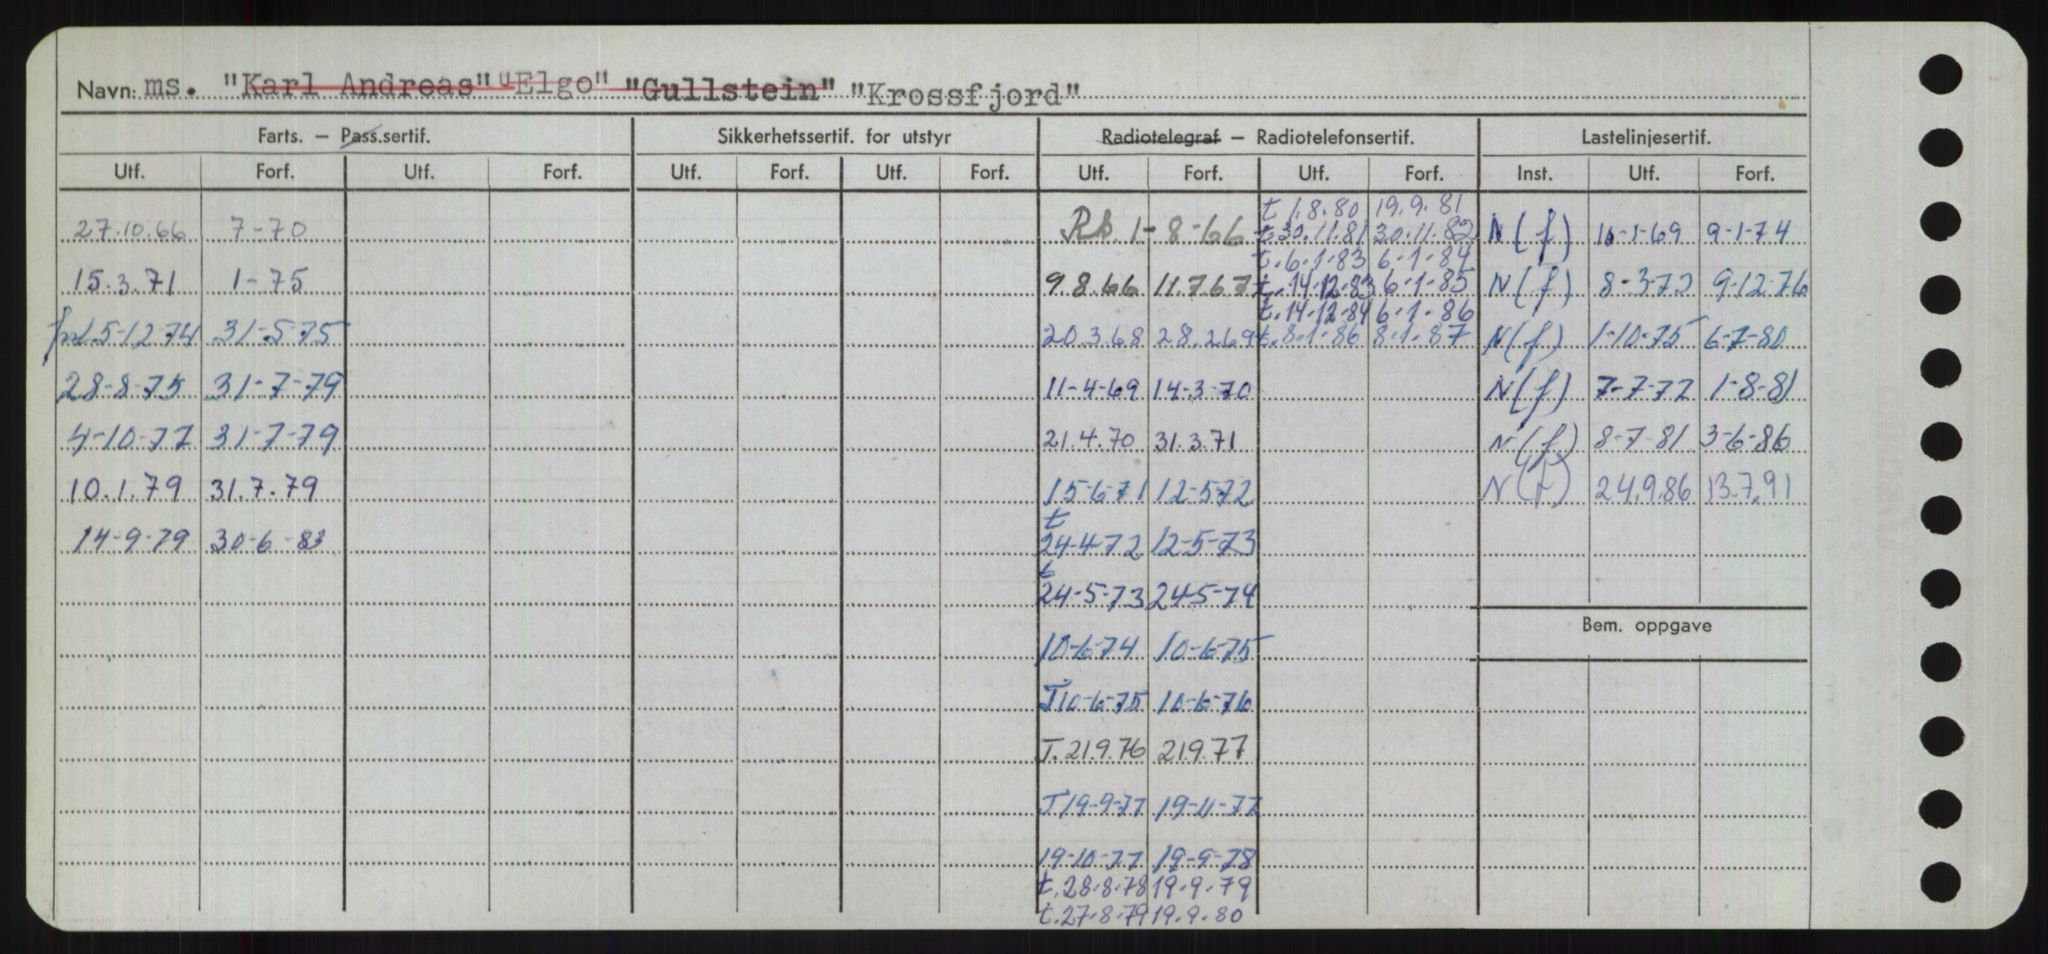 Navn: ms. "Karl Andreas" "Elgo" "Gullstein" "Krossfjord"
Farts. — Pass.sertif. Sikkerhetssertif. for utstyr Radiotelegraf — Radiotelefonsertif. Lastelinjesertif.
Utf. Forf. Utf. Forf. Utf. Forf. Utf. Forf. Utf. Forf. Utf. Forf. Inst. Utf. Forf.
t 1.8.80 19.9.81
27.10.66 7-70 Rb. 1-8-66 t.30.11.81 30.11.82 N(f) 11-1-69 9-1-74
t.6.1.83 6-1-84
15.3.71 1-75 9 8.66 11.7.67 t.14.12.83 6-1-85 N(f) 8-3-72 9-12-76
t.14.12.84 6.1.86
5-12-74 31-5-75 20.3.68 28.2.69 t.8.1.86 8.1.87 N(f) 1-10-75 6-7-80
28-8-75 31-7-79 11-4-69 14-3-70 N(f) 7-7-77 1-8-81
4-10-77 31-7-79 21.4.70 31.3.71 N(f) 8-7-81 3-6-86
10.1.79 31.7.79 15-6-71 12-5-72 N(f) 24.9.86 13.7.91
t
14-9-79 30-6-83 24-4-72 12-5-73
t
24-5-73 24-5-74
Bem. oppgave
10-6-74 10-6-75
T10-6-75 10-6-76
T.21.9.76 21.9.77
T19-9-77 19-11-77
19-10-77 19-9-78
t.28.8.78 19.9.79
t.27.8.79 19.9.80